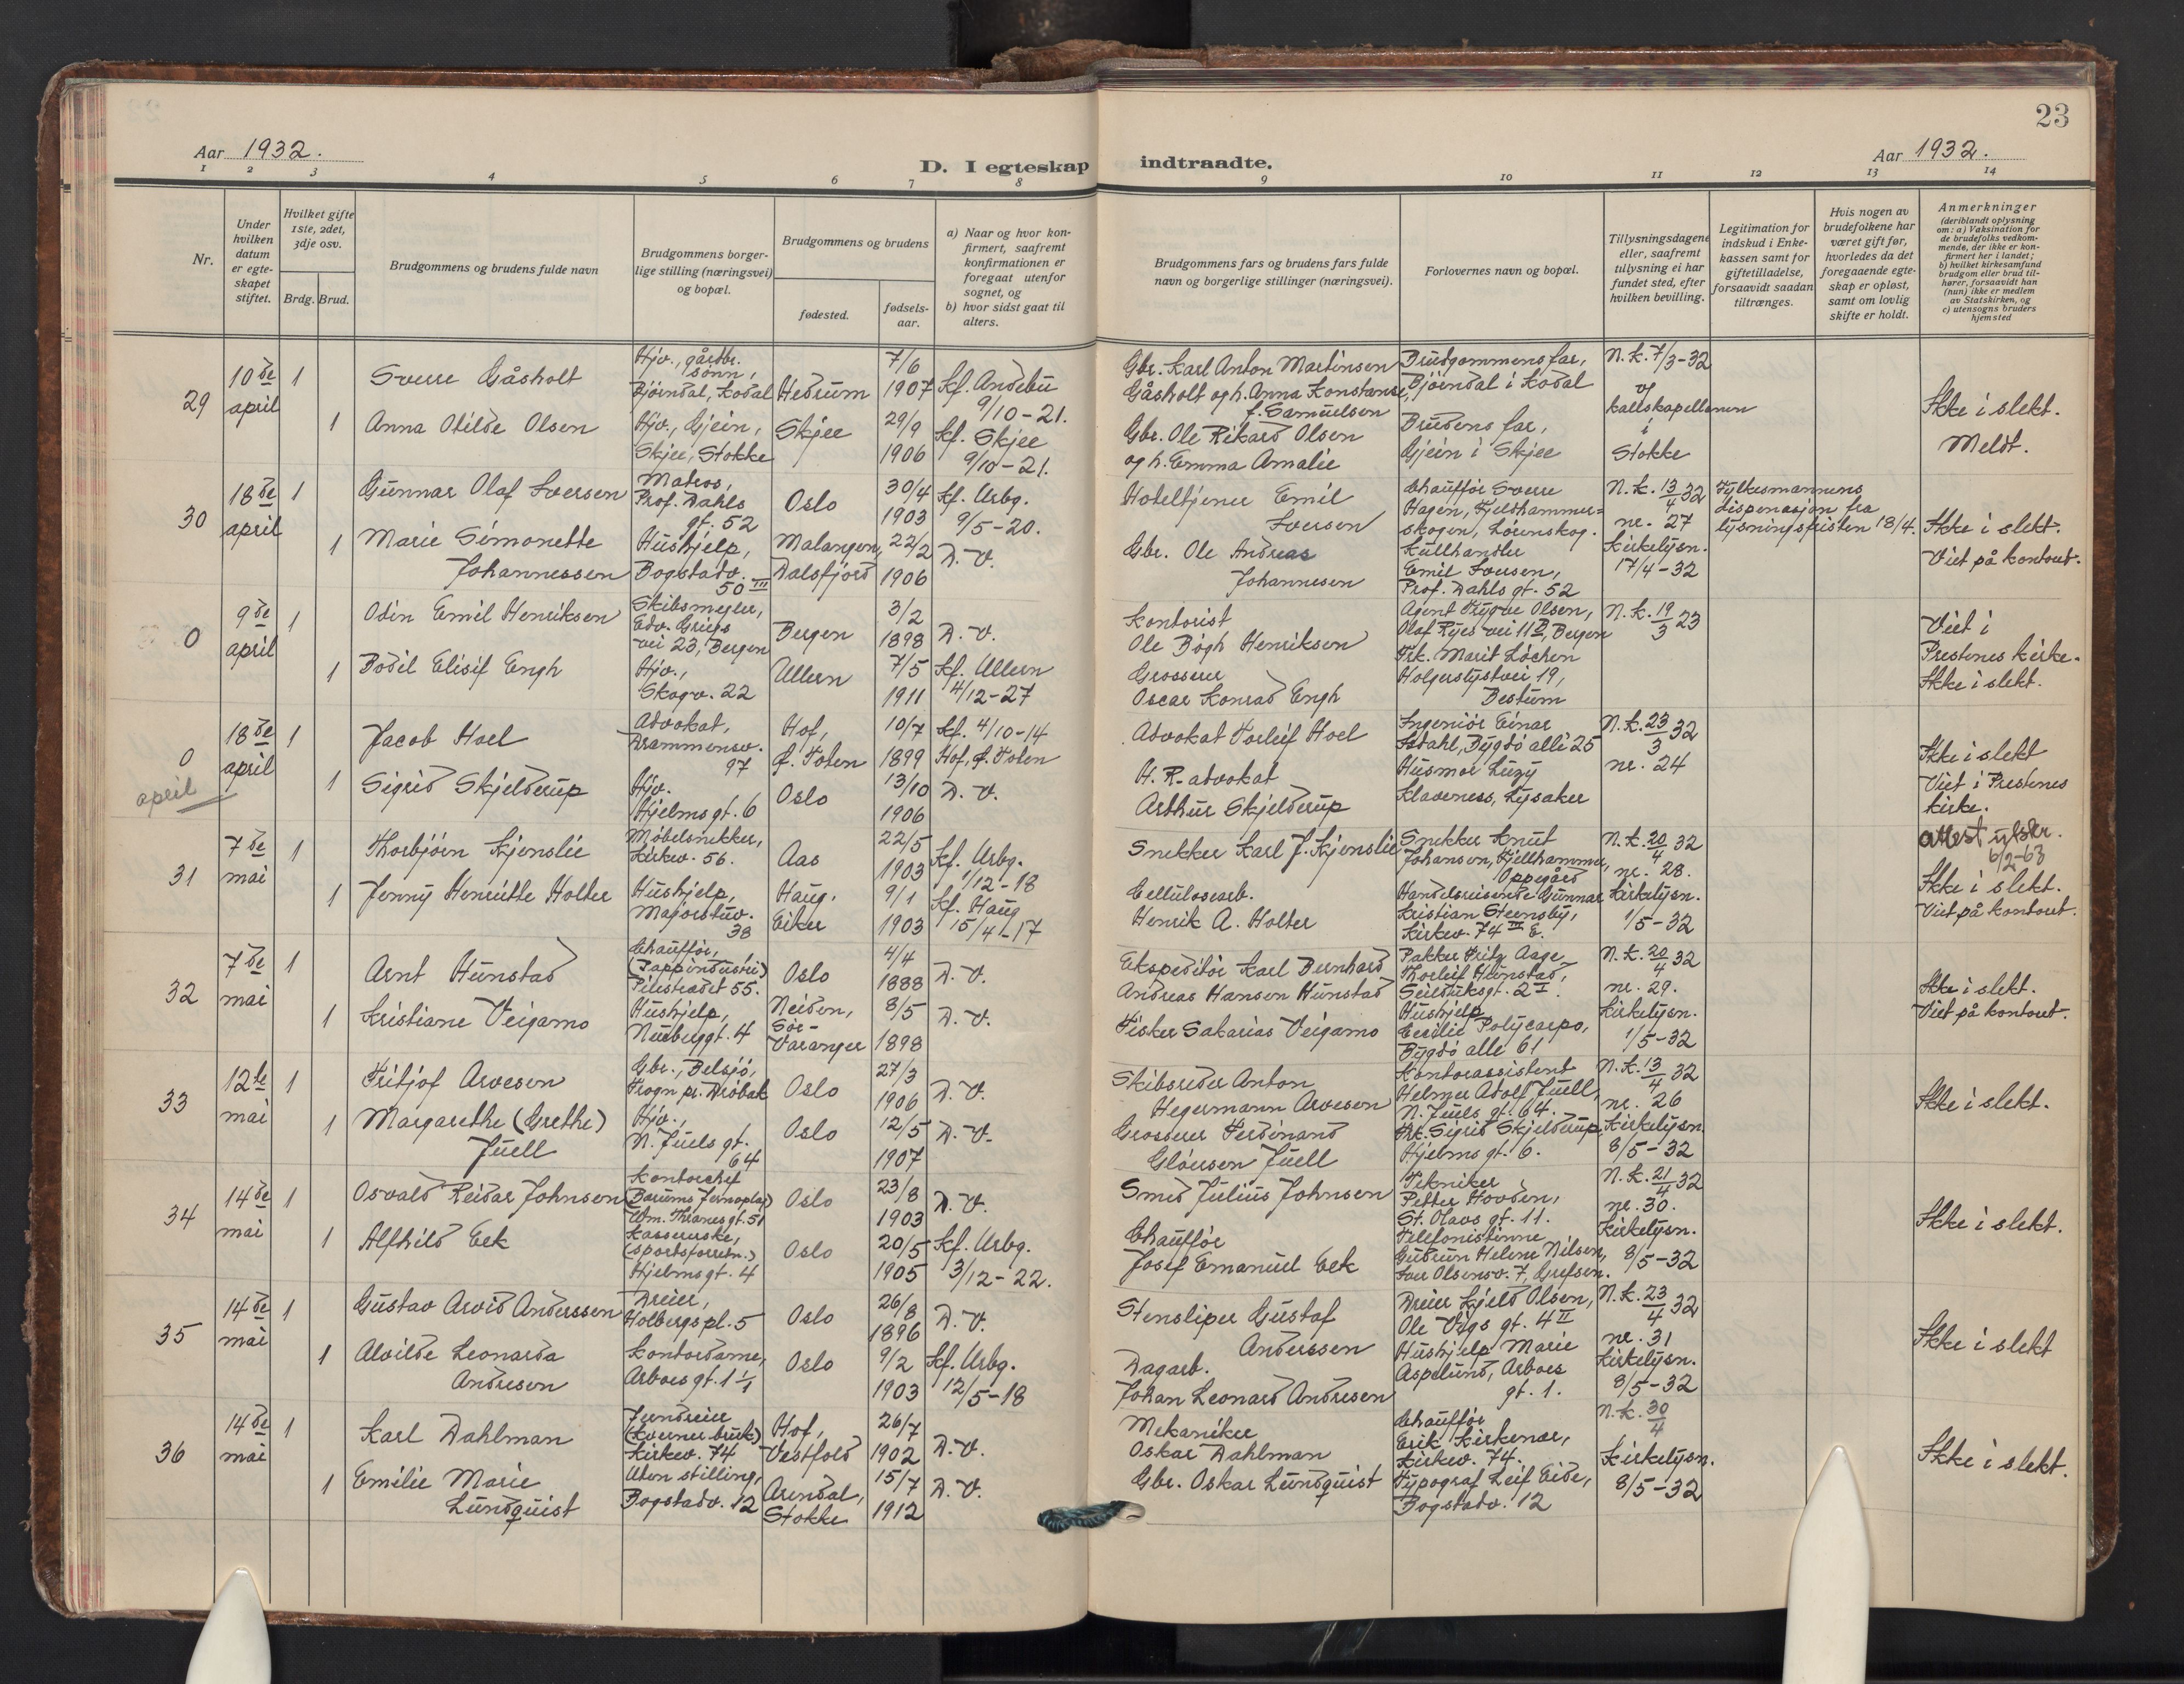 23
Aar 1932.
D. I egteskap indtraadte.
Aar 1932.
1 2 3 4 5 6 7 8 9 10 11 12 13 14
Nr.
Under hvilken datum er egteskapet stiftet.
Hvilket gifte 1ste, 2det, 3dje osv.
Brdg. Brud.
Brudgommens og brudens fulde navn
Brudgommens borgerlige stilling (næringsvei) og bopæl.
Brudgommens og brudens
fødested.
fødselsaar.
a) Naar og hvor konfirmert, saafremt konfirmationen er foregaat utenfor sognet, og
b) hvor sidst gaat til alters.
Brudgommens fars og brudens fars fulde navn og borgerlige stillinger (næringsvei).
Forlovernes navn og bopæl.
Tillysningsdagene eller, saafremt tillysning ei har fundet sted, efter hvilken bevilling.
Legitimation for indskud i Enkekassen samt for giftetilladelse, forsaavidt saadan tiltrænges.
Hvis nogen av brudefolkene har været gift før, hvorledes da det foregaaende egteskap er opløst, samt om lovlig skifte er holdt.
Anmerkninger
(deriblandt oplysning om: a) Vaksination for de brudefolks vedkommende, der ikke er konfirmert her i landet; b) hvilket kirkesamfund brudgom eller brud tilhører, forsaavidt han (hun) ikke er medlem av Statskirken, og c) utensogns bruders hjemsted
29
10de april
1 Sverre Gåsholt
Hjv., gårdbr. sønn, Bjørndal, Kodal
Hedrum
7/6 1907
Kf. Andebu 9/10-21.
Gbr. Karl Anton Martinsen Gåsholt og h. Anna Konstanse, f. Samuelsen
Brudgommens far, Bjørndal i Kodal
N.k. 7/3-32 v/ kallskapellanen i Stokke
Ikke i slekt.
Meldt.
1 Anna Otilde Olsen
Hjv., Gjein, Skjee, Stokke
Skjee
29/9 1906
Kf. Skjee 9/10-21.
Gbr. Ole Rikard Olsen og h. Emma Amalie
Brudens far, Gjein i Skjee
30
18de april
1 Gunnar Olaf Iversen
Matros, Prof. Dahls gt. 52
Oslo
30/4 1903
Kf. Urbg. 9/5-20.
Hotelltjener Emil Iversen
Chauffør Sverre Hagen, Fjellhammerskogen, Lørenskog.
N.k. 13/4 32 nr. 27
Kirkelysn. 17/4-32
Fylkesmannens dispensasjon fra lysningsfristen 18/4.
Ikke i slekt.
Viet på kontoret.
1 Marie Simonette Johannessen
Hushjelp, Bogstadv. 50 III
Malangen, Dalsfjord
22/2 1906
D.V.
Gbr. Ole Andreas Johannesen
Kullhandler Emil Iversen, Prof. Dahls gt. 52
0
9de april
1 Odin Emil Henriksen
Skibsmegler, Edv. Griegs vei 23, Bergen
Bergen
3/2 1898
D.V.
Kontorist Ole Bøgh Henriksen
Agent Trygve Olsen, Olaf Ryes vei 11 B, Bergen
N.k. 19/3 23
Viet i Prestenes kirke.
Ikke i slekt.
1 Bodil Elisif Engh
Hjv., Skogv. 22
Ullern
7/5 1911
Kf. Ullern 4/12-27
Grosserer Oscar Konrad Engh
Frk. Marit Løchen Holgerslystvei 19, Bestum
0
18de april
april
1 Jacob Hoel
Advokat, Drammensv. 97
Hof, Ø. Toten
10/7 1899
Kf. 4/10-14 Hof, Ø. Toten
Advokat Torleif Hoel
Ingeniør Einar Isdahl, Bygdø allé 25
N.k. 23/3 32 nr. 24
Ikke i slekt
Viet i Prestenes kirke.
1 Sigrid Skjelderup
Hjv. Hjelmsgt. 6
Oslo
13/10 1906
D.V.
H.R. advokat Arthur Skjelderup
Husmor Luzy Klaveness, Lysaker
31
7de mai
1 Thorbjørn Kjenslie
Møbelsnekker, Kirkev. 56.
Aas
22/5 1903
Kf. Urbg. 1/12-18
Snekker Karl J. Kjenslie
Snekker Knut Johansen, Hjellhammer, Oppegård
N.k. 20/4 32 nr. 28.
Kirkelysn. 1/5-32
attest utskr. 6/2-63
Ikke i slekt.
Viet på kontoret.
1 Jenny Henriette Holter
Hushjelp, Majorstuv. 38
Haug, Eiker
9/1 1903
Kf. Haug 15/4-17
Cellulosearb. Henrik A. Holter
Handelsreisende Gunnar Kristian Steensby, Kirkev. 74 III E.
32
7de mai
1 Arnt Hunstad
Chauffør, (Pappindustri) Pilestredet 55.
Oslo
4/4 1888
D.V.
Ekspeditør Karl Bernhard Andreas Hansen Hunstad
Pakker Fritz Aage Thorleif Hunstad, Seilduksgt. 2 I.
N.k. 20/4 32 nr. 29.
Kirkelysn. 1/5-32
Ikke i slekt.
Viet på kontoret.
1 Kristiane Veigamo
Hushjelp, Neuberggt. 4
Neiden, Sør-Varanger
8/5 1898
D.V.
Fisker Sakarias Veigamo
Hushjelp Cecilie Polycarpo, Bygdø alle 61
33
12te mai
1 Fritjof Arvesen
Gbr., Belsjø, Frogn pr. Drøbak
Oslo
27/3 1906
D.V.
Skibsreder Anton Hegermann Arvesen
Kontorassistent Helmer Adolf Juell, N. Juels gt. 64.
N.k. 13/4 32 nr. 26
Kirkelysn. 8/5-32
Ikke i slekt.
1 Margarethe (Grethe) Juell
Hjv., N. Juels gt. 64
Oslo
12/5 1907
D.V.
Grosserer Ferdinand Gløersen Juell
Frk. Sigrid Skjelderup, Hjelms gt. 6.
34
14de mai
1 Osvald Reidar Johnsen
Kontorchef (Bærums Jernoplag) Wm. Thranes gt. 51
Oslo
23/8 1903
D.V.
Smed Julius Johnsen
Tekniker Petter Hovden, St. Olavs gt. 11.
N.k. 21/4 32 nr. 30.
Kirkelysn. 8/5-32
Ikke i slekt.
1 Alfhild Eek
Kassererske, (sportsforretn.) Hjelmsgt. 4
Oslo
20/5 1905
Kf. Urbg. 3/12-22.
Chauffør Josef Emanuel Eek
Telefonistinne Gudrun Helene Nilsen, Iver Olsensv. 7, Grefsen.
35
14de mai
1 Gustav Arvid Anderssen
Dreier, Holbergs pl. 5
Oslo
26/8 1896
D.V.
Stensliper Gustaf Anderssen
Dreier Kjeld Olsen, Ole Vigs gt. 4 II
N.k. 23/4 32 nr. 31
Kirkelysn. 8/5-32
Ikke i slekt
1 Alvilde Leonarda Andresen
Kontordame, Arboesgt. 1
Oslo
9/2 1903
Kf. Urbg. 12/5-18
Dagarb. Johan Leonard Andresen
Hushjelp Marie Aspelund, Arboes gt. 1.
36
14de mai
1 Karl Dahlman
Jerndreier (Kværner bruk) Kirkev. 74
Hof, Vestfold
26/7 1902
D.V.
Mekaniker Oskar Dahlman
Chauffør Erik Kirkenær, Kirkev. 74.
N.k. 30/4
Kirkelysn. 8/5-32
Ikke i slekt.
1 Emilie Marie Lundquist
Uten stilling, Bogstadv. 12
Arendal, Stokke
15/7 1912
D.V.
Gbr. Oskar Lundquist
Typograf Leif Eide, Bogstadv. 12